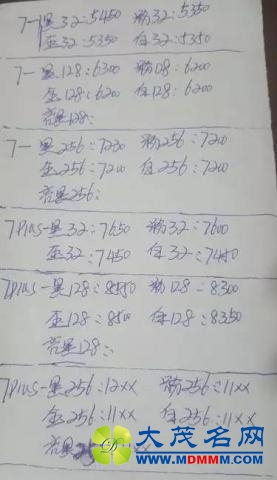 7-黑32:5450 粉32:5350
金32:5350 白32:5350
7-黑128:6300 粉128:6200
金128:6200 白128:6200
亮黑128:
7-黑256:7220 粉256:7200
金256:7200 白256:7200
亮黑256:
7Plus-黑32:7650 粉32:7600
金32:7450 白32:7450
7Plus-黑128:8550 粉128:8300
金128:8500 白128:8350
亮黑128:
7Plus-黑256:12xx 粉256:11xx
金256:11xx 白256:11xx
亮黑
大茂名网
WWW.MDMMM.COM